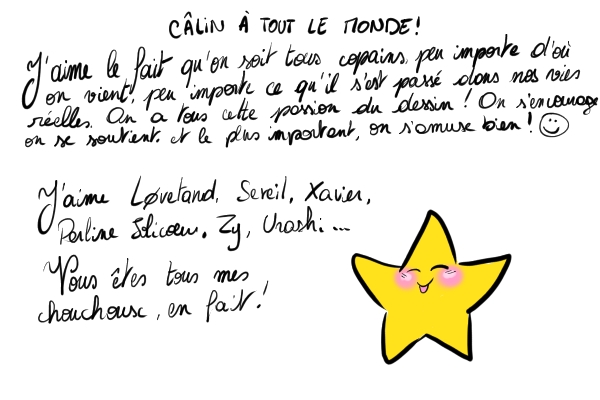 CÂLIN À TOUT LE MONDE!
J'aime le fait qu'on soit tous copains, peu importe d'où
on vient, peu importe ce qu'il s'est passé dans nos vies
réelles. On a tous cette passion du dessin! On s'encourage
on se soutient. et le plus important, on s'amuse bien!
J'aime Løvetand, Sereil, Xavier,
Perline Jolicoeur, Zy, Urashi...
Vous êtes tous mes
chouchous, en fait!